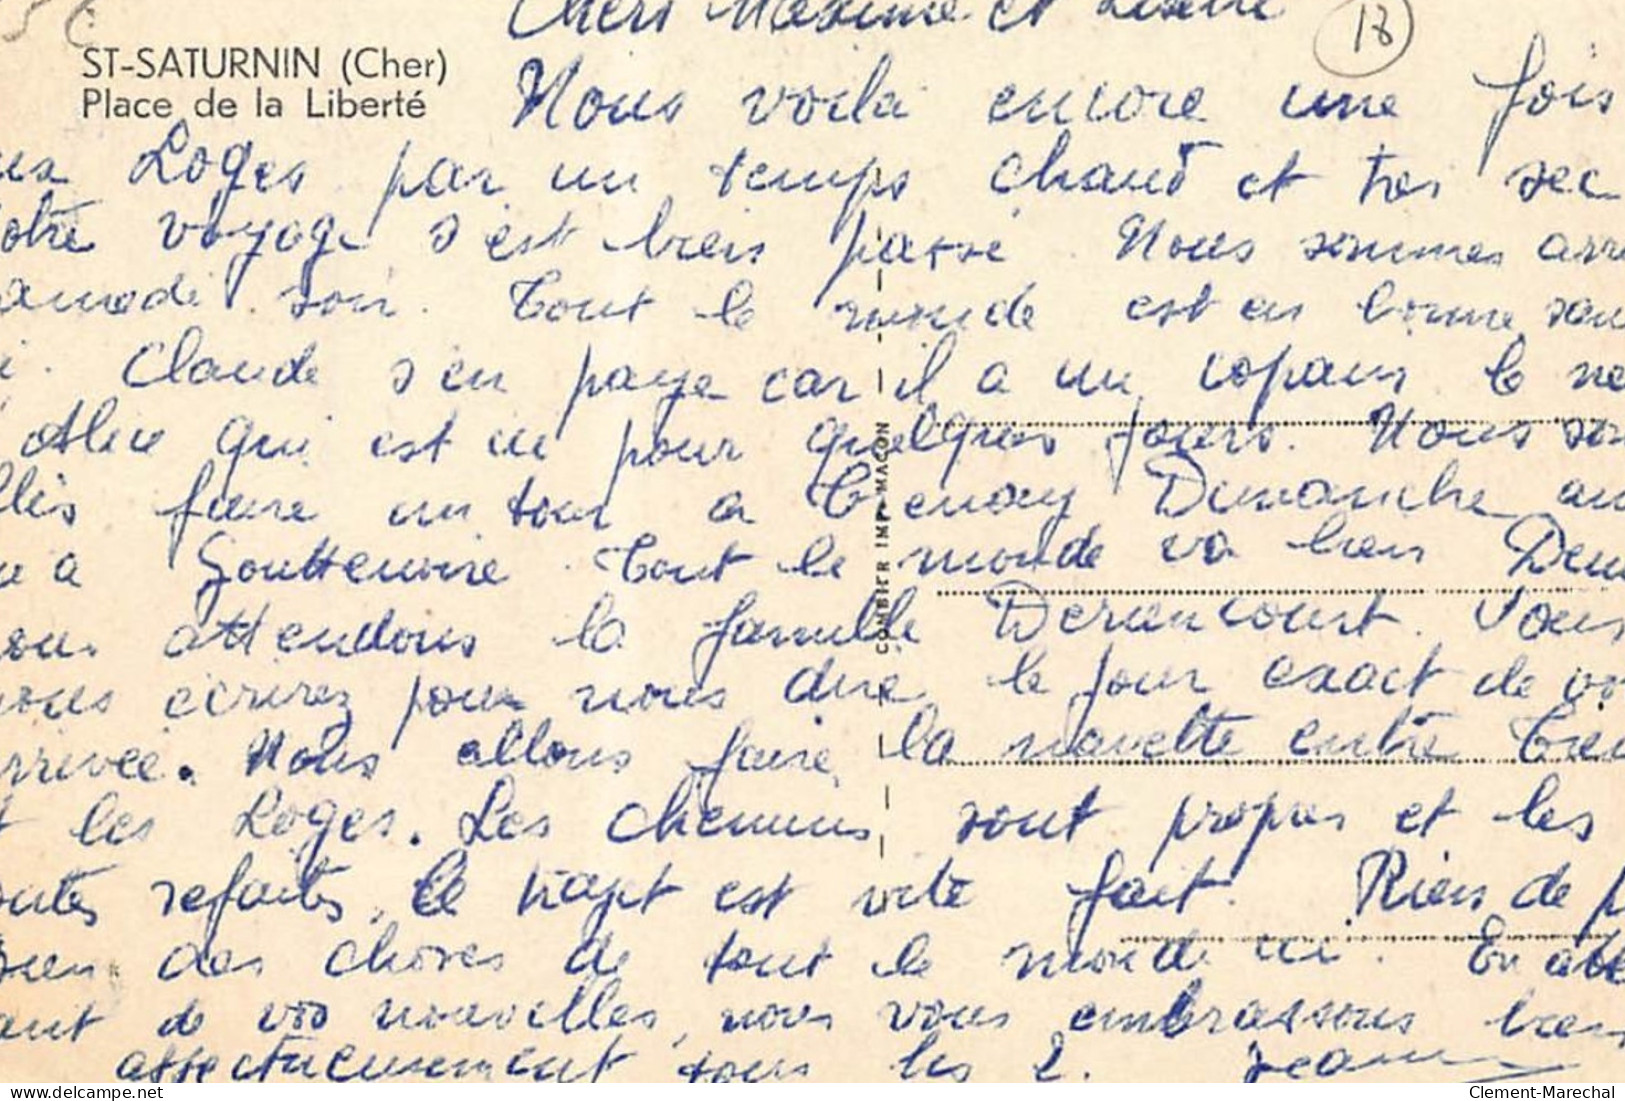 Chers Maxime et Lisette
18
ST-SATURNIN (Cher)
Place de la Liberté
Nous voilà encore une fois
aux Loges par un temps chaud et très sec
notre voyage s'est bien passé. Nous sommes arri
samedi soir. Tout le monde est en bonne san
ici. Claude s'en paye car il a un copain le ne
d'Alice qui est ici pour quelques jours. Nous som
allés faire un tour a Trenay Dimanche
a Gouttenoire. Tout le monde va bien
nous attendons la famille Deruncourt. Vous
nous écrirez pour nous dire le jour exact de vo
arrivée. Nous allons faire la navette entre
et les Loges. Les chemins sont propres et les
routes refaites, le trajet est vite fait. Rien de p
bien des choses de tout le monde ici. En atte
ant de vos nouvelles, nous vous embrassons bien
affectueusement tous les 2. Jean
COMBIER IMP. MACON
www.delcampe.net
Clement-Marechal